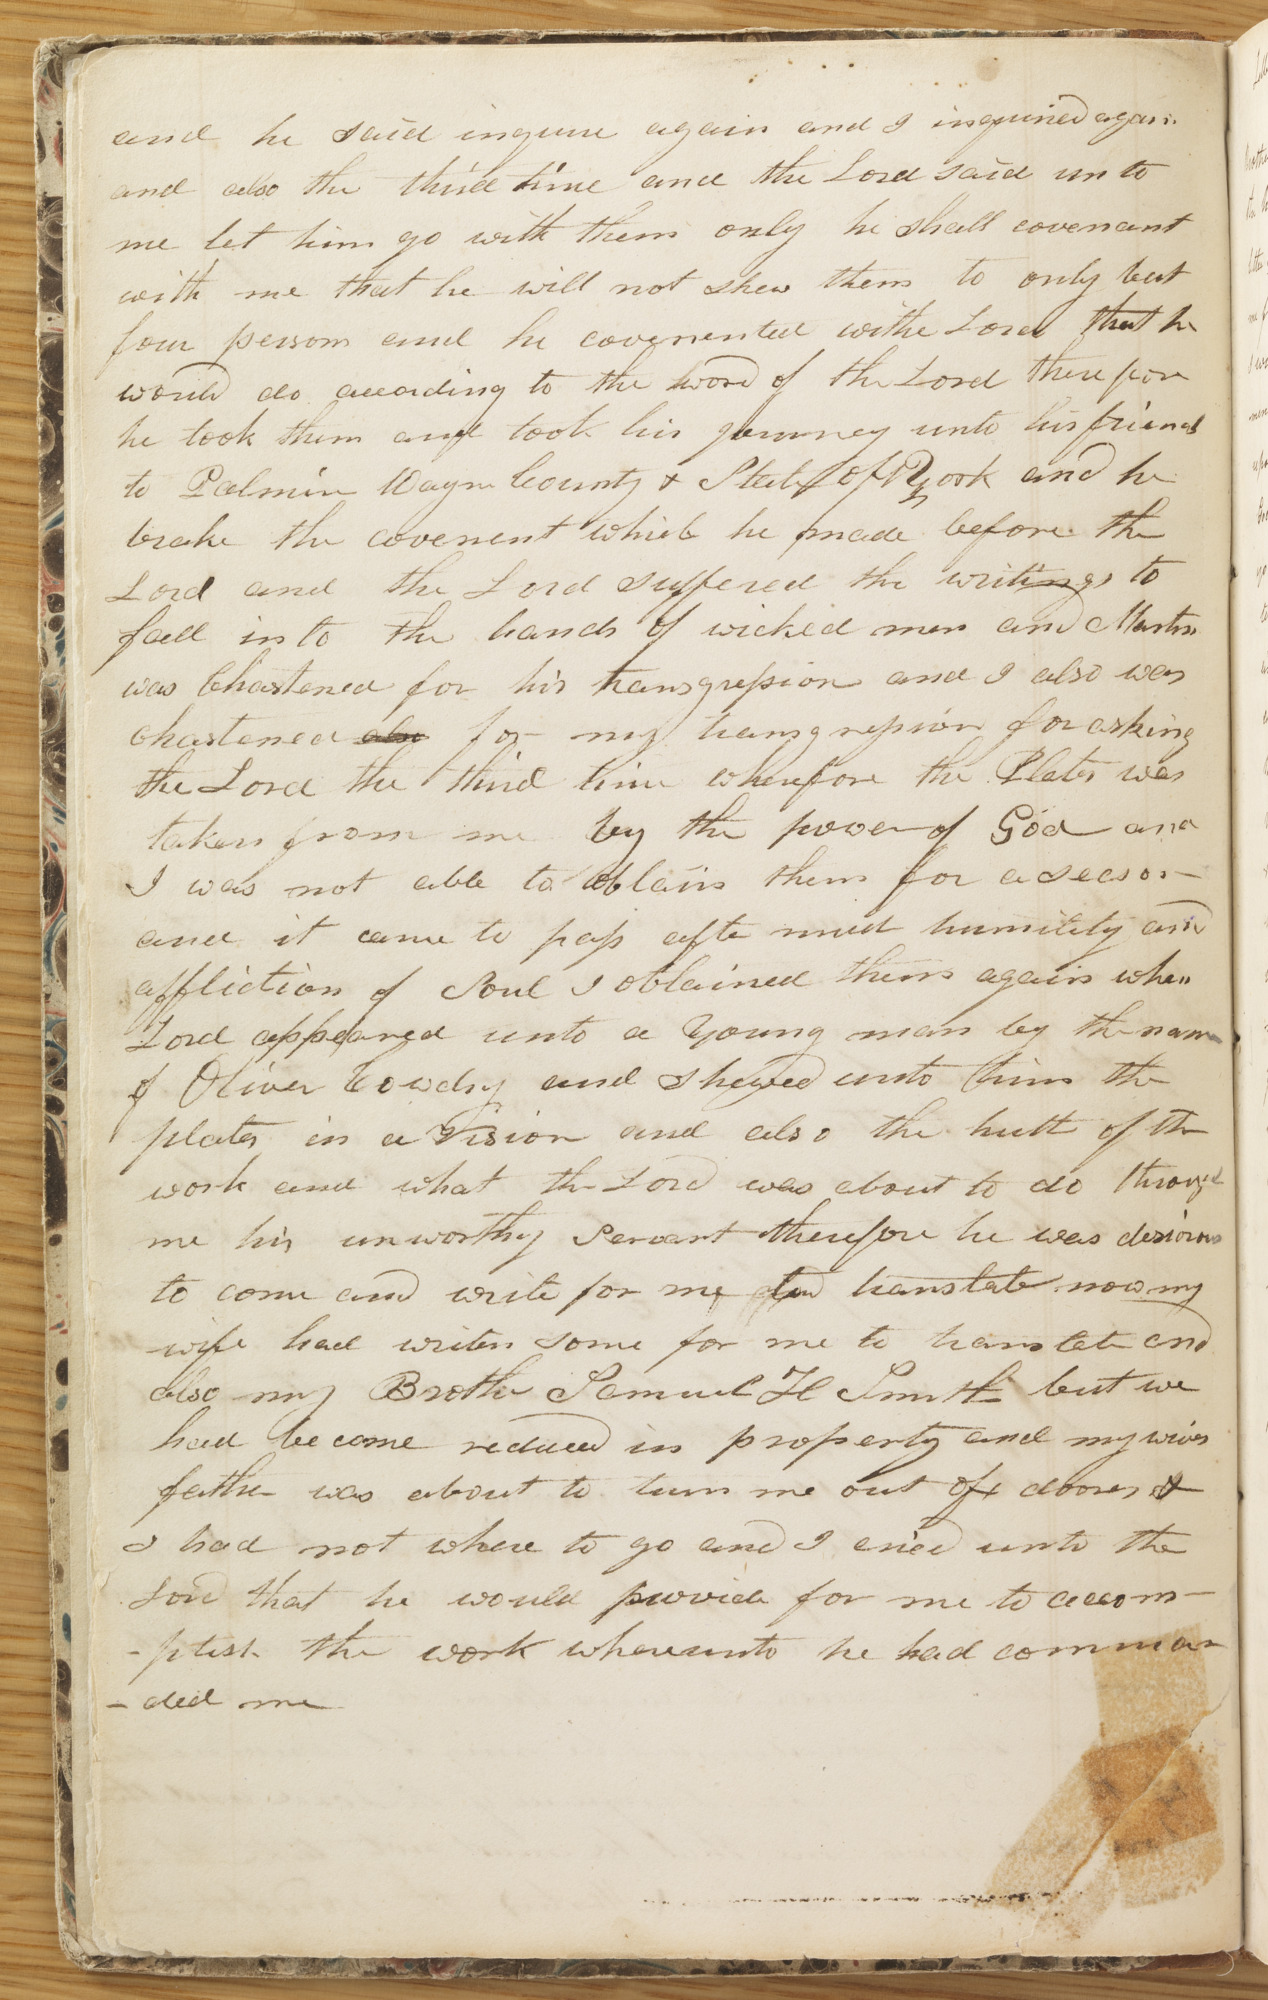 and he said inquire again and I inquired again
and also the third time and the Lord said unto
me let him go with them only he shall covenant
with me that he will not shew them to only but
four persons and he covenented withe Lord that he
would do according to the word of the Lord therefore
he took them and took his journey unto his friends
to Palmire Wayne County & State of N York and he
brake the covenent which he made before the
Lord and the Lord suffered the writings to
fall into the hands of wicked men and Martin
was Chastened for his transgression and I also was
chastened also for my transgression for asking
the Lord the third time wherefore the Plates was
taken from me by the power of God and
I was not able to obtain them for a season
and it came to pass afte much humility and
affliction of Soul I obtained them again when
Lord appeared unto a young man by the name
of Oliver Cowdry and shewed unto him the
plates in a vision and also the truth of the
work and what the Lord was about to do through
me his unworthy Servant therefore he was desiorous
to come and write for me to translate now my
wife had writen some for me to translate and
also my Brothr Samuel H Smith but we
had become reduced in property and my wives
father was about to turn me out of doores &
I had not where to go and I cried unto the
Lord that he would provide for me to accom-
-plish the work whereunto he had comman
-ded me